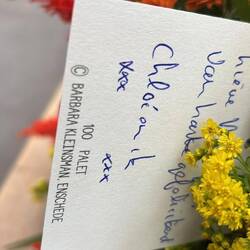 Lieve
Van harte gefeliciteerd
Chloé en ik
xxx xxx
100 PALET
© BARBARA KLEINSMAN, ENSCHEDE